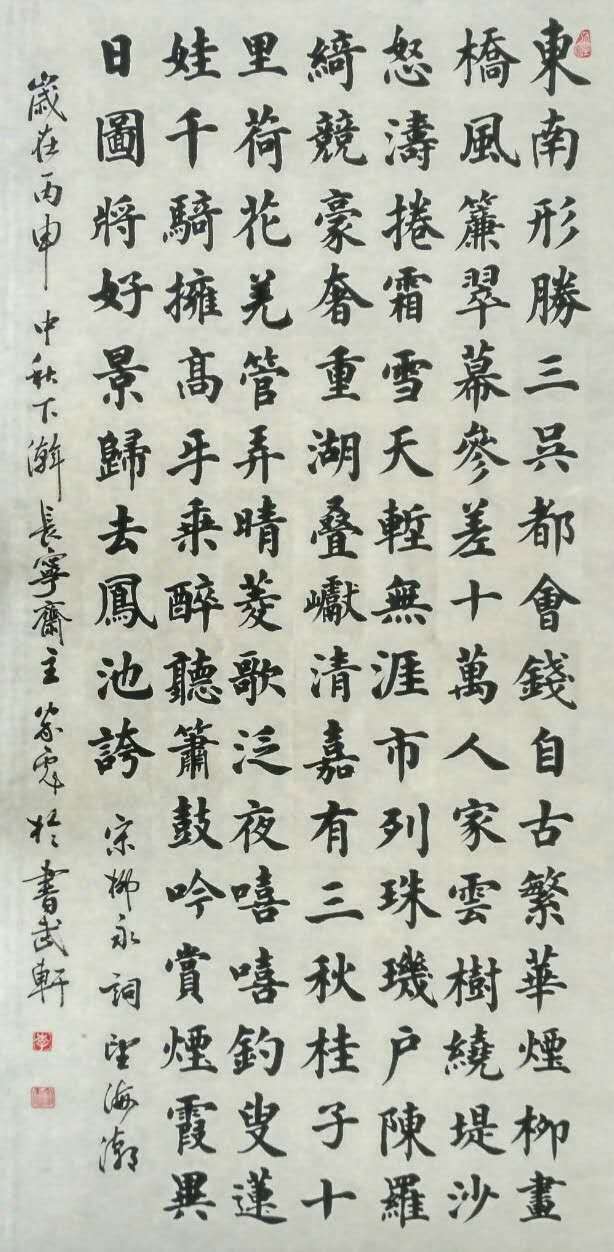 東南形勝三吳都會錢自古繁華煙柳畫
橋風簾翠幕參差十萬人家雲樹繞堤沙
怒濤捲霜雪天塹無涯市列珠璣户陳羅
綺競豪奢重湖叠巘清嘉有三秋桂子十
里荷花羌管弄晴菱歌泛夜嘻嘻釣叟蓮
娃千騎擁高牙乘醉聽簫鼓吟賞煙霞異
日圖將好景歸去鳳池誇 宋柳永詞望海潮
歲在丙申中秋下澣長寧齋主於書武軒